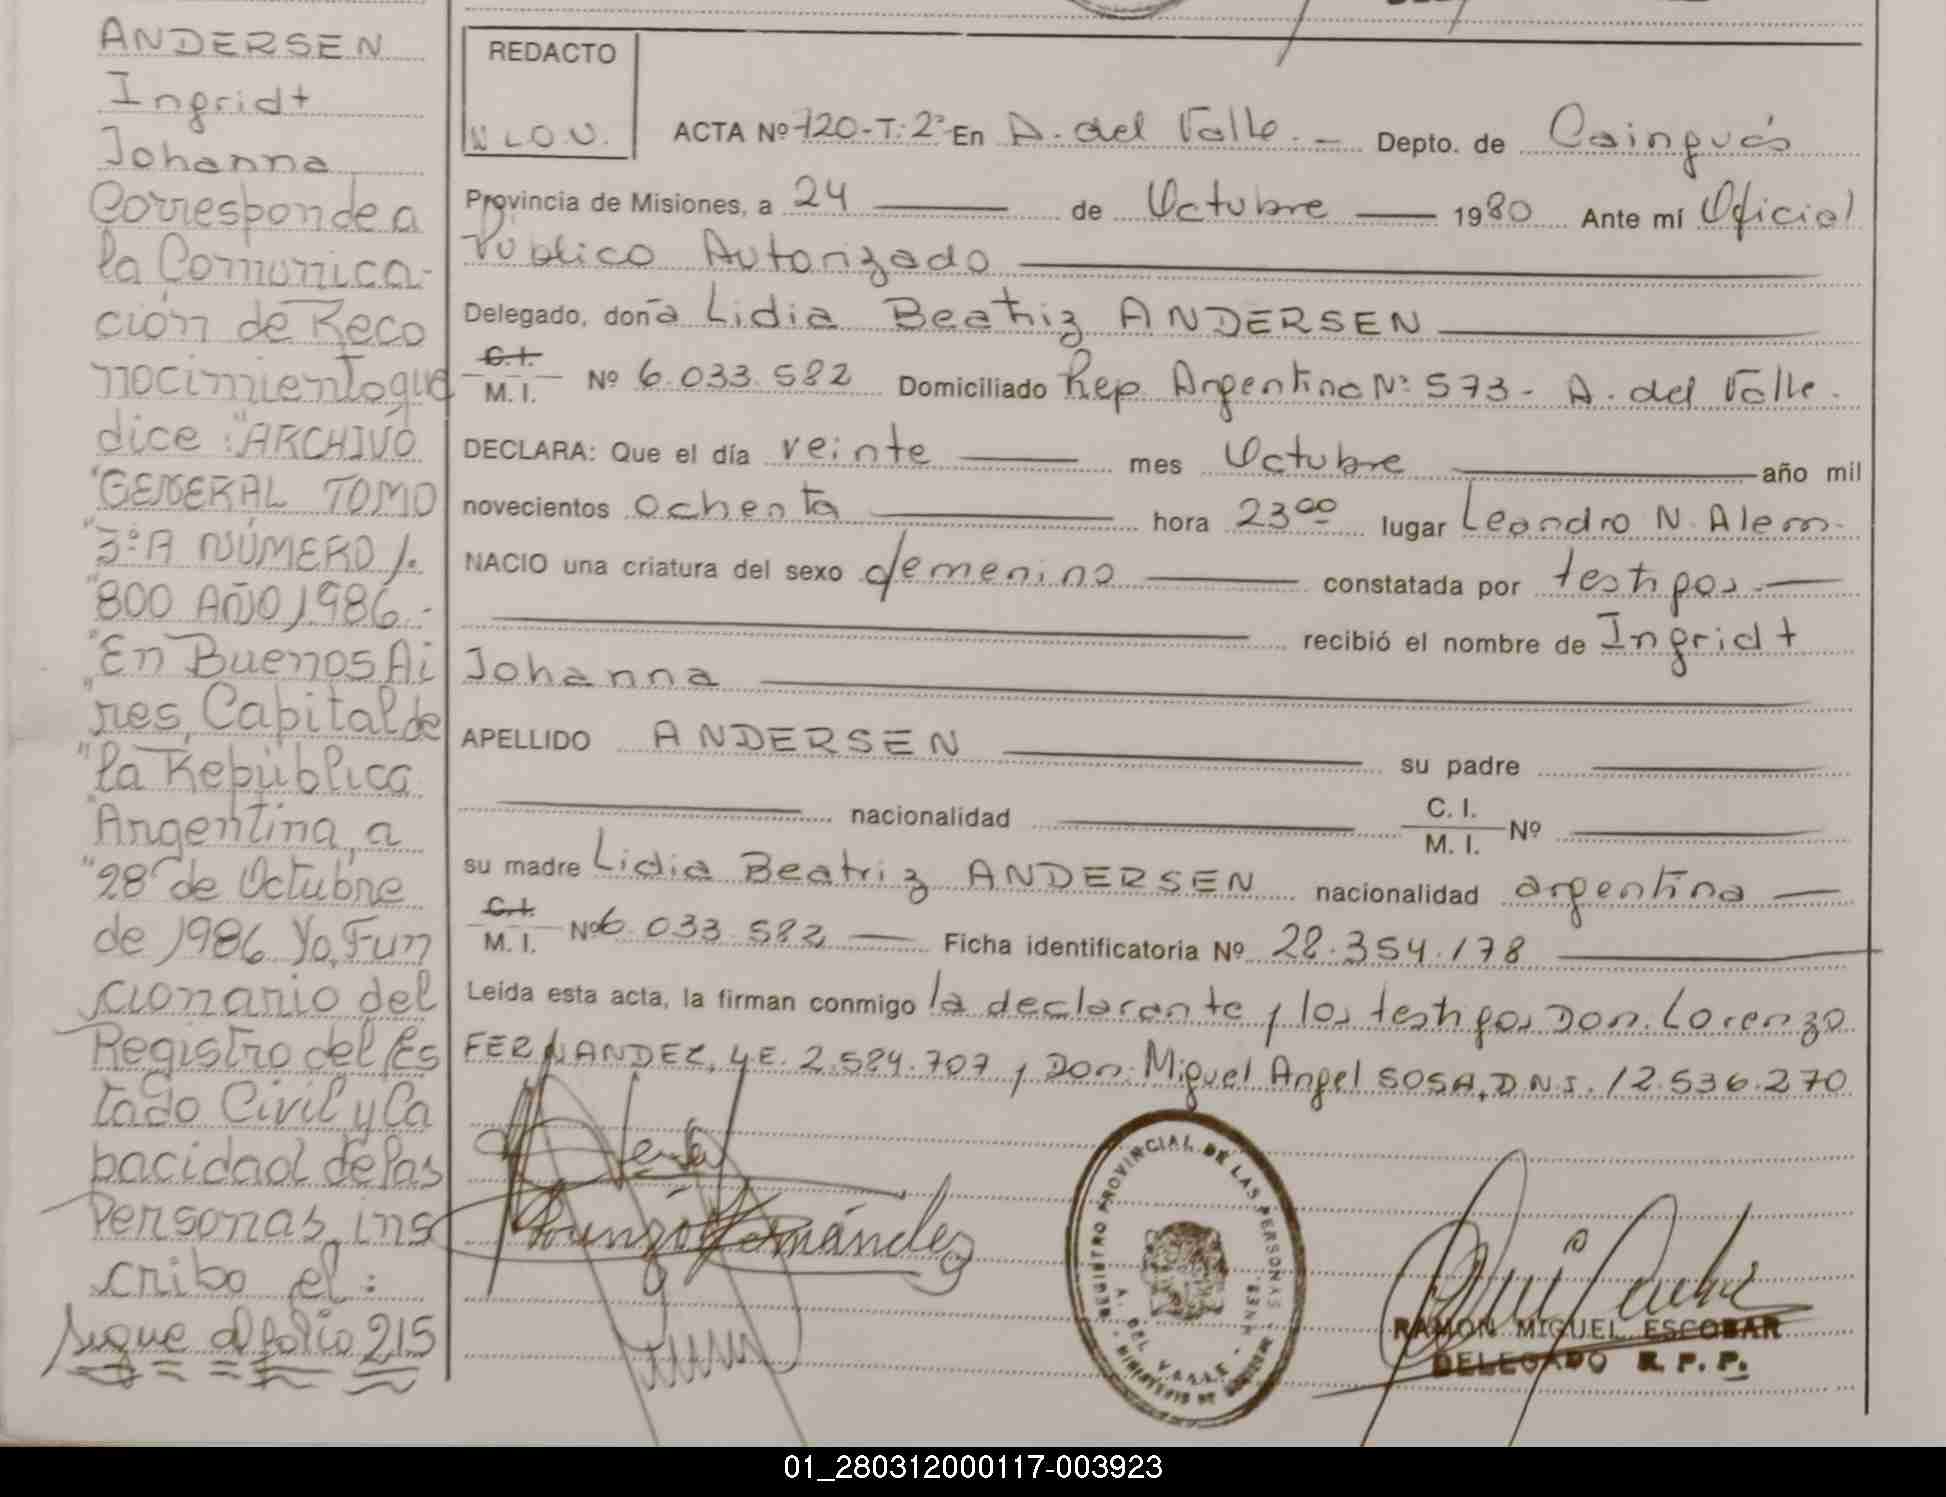 ANDERSEN
Ingridt
Johanna
Corresponde a
la Comunica-
ción de Reco
nocimiento que
dice: "ARCHIVO
"GENERAL TOMO
"3º A NÚMERO 1.
"800 AÑO 1986.-
"En Buenos Ai
"res, Capital de
"la República
"Argentina, a
"28 de Octubre
de 1986 Yo, Fun
cionario del
Registro del Es
tado Civil y Ca
pacidad de las
Personas, ins
cribo el:
sigue al folio 215
REDACTO
N.L.O.V.
ACTA Nº 120-T: 2º En A. del Valle. - Depto. de Cainguás
Provincia de Misiones, a 24 de Octubre 1980 Ante mí Oficial
Público Autorizado
Delegado, doña Lidia Beatriz ANDERSEN
C.I.
M. I. Nº 6.033.582 Domiciliado Rep. Argentina Nº 573- A. del Valle.
DECLARA: Que el día veinte mes Octubre año mil
novecientos ochenta hora 23 00 lugar Leandro N. Alem.
NACIO una criatura del sexo femenino constatada por testigos.
recibió el nombre de Ingridt
Johanna
APELLIDO ANDERSEN su padre
nacionalidad C. I.
M. I. Nº
su madre Lidia Beatriz ANDERSEN nacionalidad argentina
C.I.
M. I. Nº 6.033.582 Ficha identificatoria Nº 28.354.178
Leída esta acta, la firman conmigo la declarante y los testigos Don. Lorenzo
FERNANDEZ, L.E. 2.584.707 y Don. Miguel Angel SOSA, D.N.I. 12.536.270
Lorenzo Fernández
REGISTRO PROVINCIAL DE LAS PERSONAS
A. DEL VALLE
MINISTERIO DE GOBIERNO
RAMON MIGUEL ESCOBAR
DELEGADO R. P. P.
01_280312000117-003923